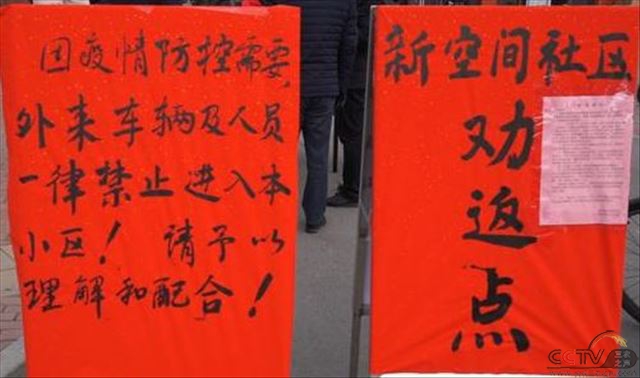 因疫情防控需要
外来车辆及人员
一律禁止进入本
小区！请予以
理解和配合！
新空间社区
劝
返
点
CCTV